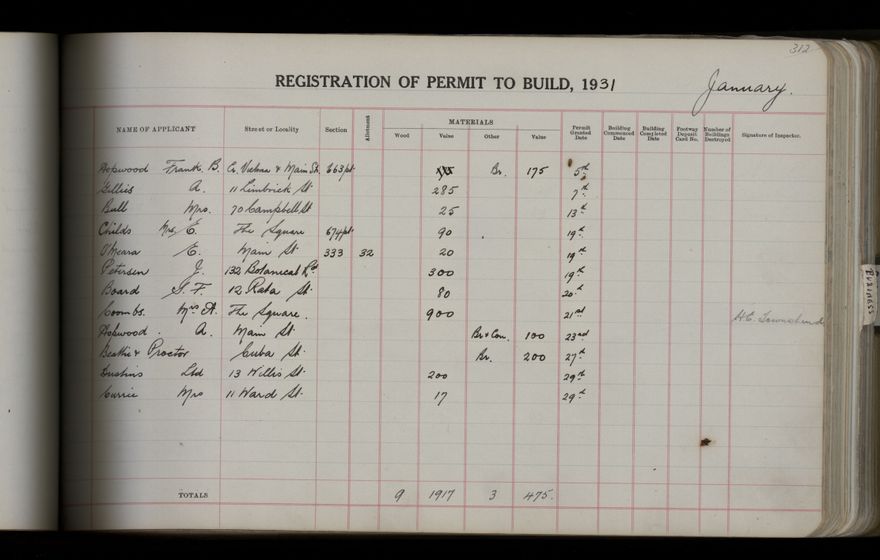 312
REGISTRATION OF PERMIT TO BUILD, 1931 January.
NAME OF APPLICANT Street or Locality Section Allotment MATERIALS Wood Value Other Value Permit Granted Date Building Commenced Date Building Completed Date Footway Deposit Card No. Number of Buildings Destroyed Signature of Inspector.
Hopwood Frank. B. Cr. Victoria & Main St. 663pt Br. 175 5th
Gillies A. 11 Limbrick St 285 7th
Bull Mrs. 70 Campbell St 25 13th
Childs Mrs E. The Square 674pt 90 19th
O'Meara E. Main St. 333 32 20 19th
Petersen J. 132 Botanical Rd 300 19th
Board G. F. 12 Rata St. 80 20th
Coombs. Mrs A. The Square. 900 21st H.C. Townshend
Hopwood. A. Main St. Br & Con. 100 23rd
Beattie & Proctor Cuba St. Br. 200 27th
Dustins Ltd 13 Willis St. 200 29th
Currie Mrs 11 Ward St. 17 29th
TOTALS 9 1917 3 475.